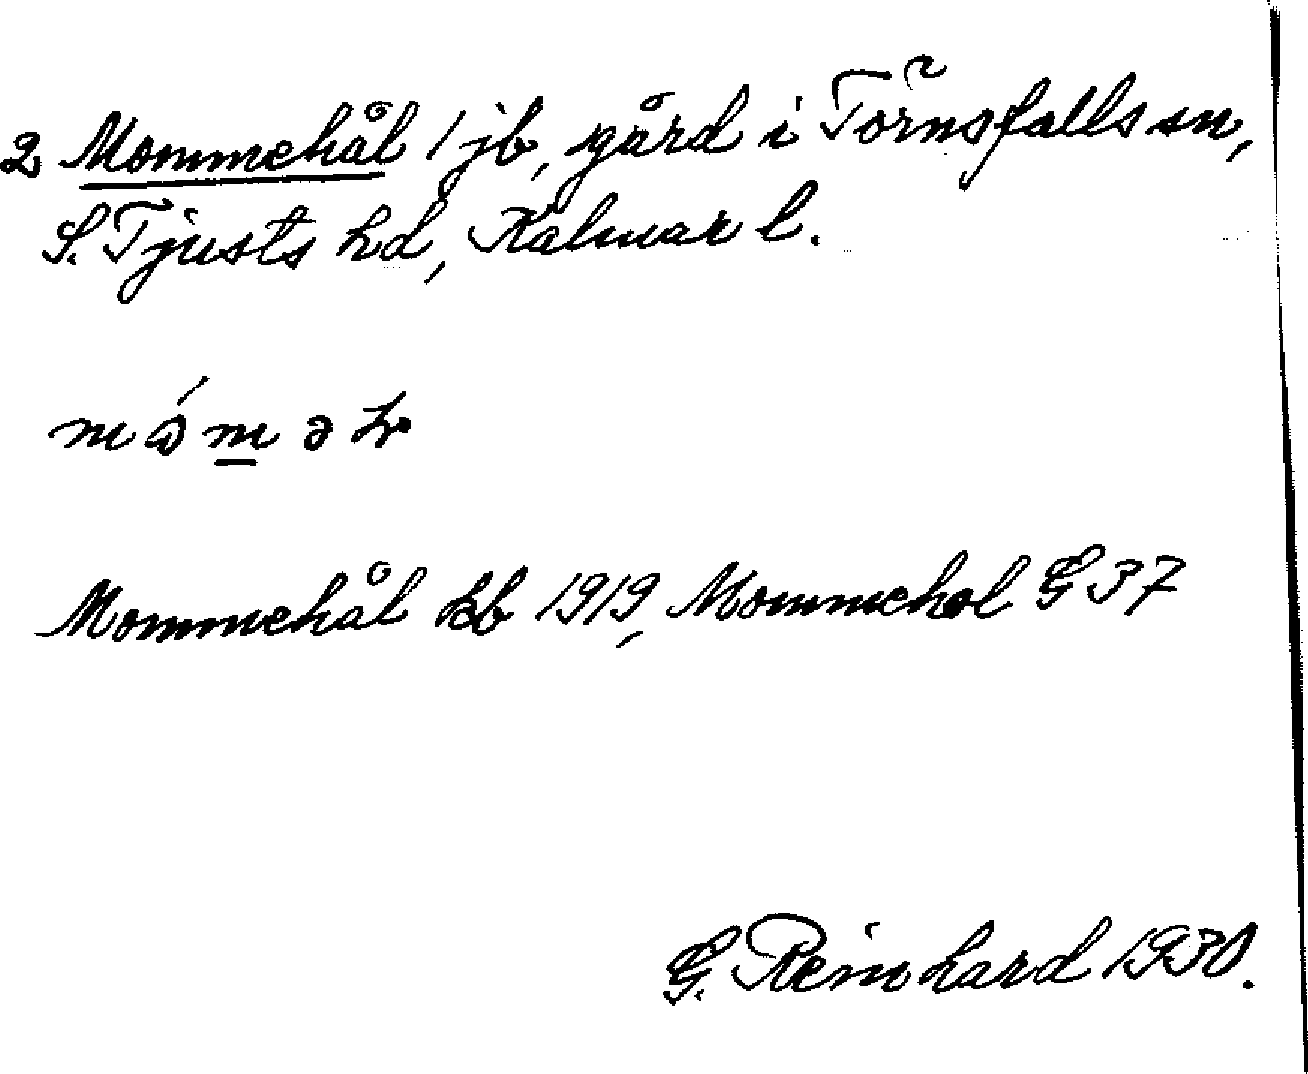 2 Mommehål / jb, gård i Törnsfalls sn,
S. Tjusts hd, Kalmar l.
Mommehål kb 1919, Mommehol G 37
G. Reinhard 1930.